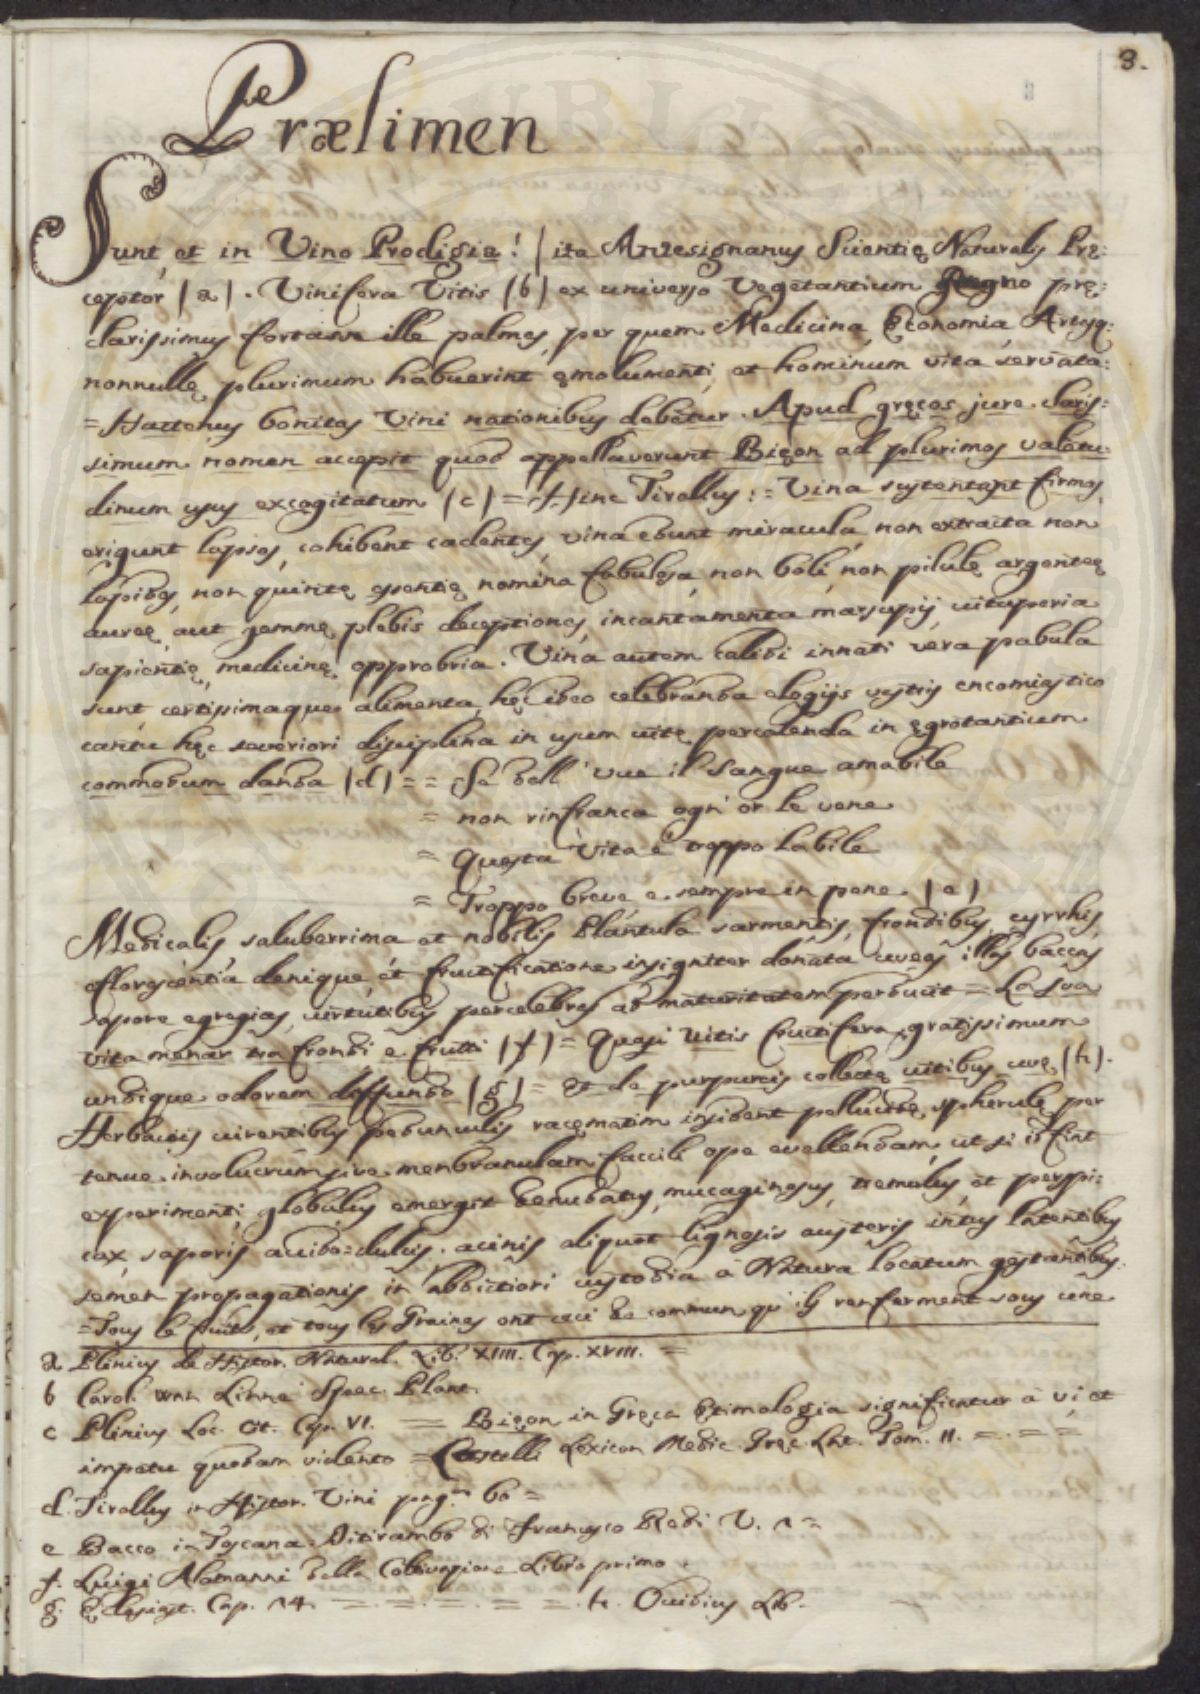 3.
Prælimen
Sunt, et in Vino Prodigia! | ita Artesignanus Scientię Naturalis Prę:
ceptor | a | . Vinifera Vitis | b | ex universo Vegetantium Regno prę:
clarissimus fortasse ille palmes, per quem Medicina, Economia, Artesq:
nonnullę plurimum habuerint ęmolumenti, et hominum vita servata:
= Hactenus bonitas Vini nationibus debetur. Apud gręcos jure claris:
simum nomen accepit quod appellaverunt Bięon ad plurimos valetu
dinum usus excogitatum | c | = Hinc Tirellus: = Vina sustentant firmos,
erigunt lapsos, cohibent cadentes, vina edunt miracula, non extracta non
lapides, non quintę essentię nomina fabulosa, non boli, non pilulę argenteę
aureę, aut gemmę, plebis deceptiones, incantamenta marsupij, vituperia
sapientię, medicinę opprobria. Vina autem calidi innati vera pabula
sunt, certissimaque alimenta, hęc ideo celebranda elogijs vestris encomiastico
cantu hęc severiori disciplina in usum vitę percolenda in ęgrotantium
commodum danda | d | = = Se dell' uve il Sangue amabile
= non rinfranca ogn' or le vene
= Questa Vita è troppo labile
= Troppo breve e sempre in pene | e |
Medicalis saluberrima et nobilis Plantula sarmentis, frondibus, cyrrhis,
efflorescentia denique, et fructificatione insigniter donata uveas illas baccas
sapore egregias, virtutibus percelebres ad maturitatem perducit = La sua
vita menar tra frondi e frutti | f | = Quasi Vitis fructifera gratissimum
undique odorem deffundo | g | = Et de purpureis collectę vitibus uvę | h | .
Herbaceis virentibus pedunculis racęmatim insident pellucidę sphęrulę per
tenue involucrum sive menbranulam faccili ope evellendam, ut si id fint
experimenti, globulus emergit denudatus, mucaginosus, tremulus, et perspi:
cax, saporis acido=dulcis. acinis aliquot lignosis austeris intus latentibus
semen propagationis in abditiori custodia a Natura locatum gestantibus.
= Tous le fruits, et tous les Graines ont ceci de commun, qu'ils renferment sous une
a Plinius de Histor. Natural. Lib. XIIII. Cap. XVIII. =
b Carol. Linne Spec. Plant.
c Plinius Loc. Cit. Cap. VI. = Bięon in Gręca Etimologia significatur a vi, et
impetu quodam violento = Castelli Lexicon Medic. Gręc. Lat. Tom. II. = = =
d. Tirellus in Histor. Vini pag. 60 =
e Bacco in Toscana. Ditirambo di Francesco Redi V. 1 =
f. Luigi Alamanni della Coltivazione Libro primo.
g. Ecclesiast. Cap. 24. = = = = = h. Ovidius Lib.